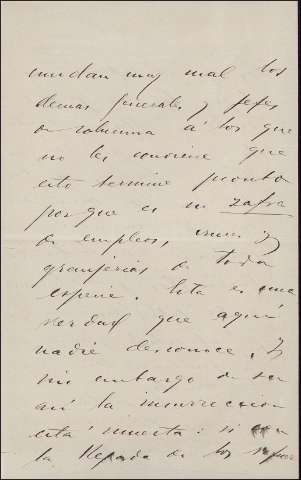 mudan muy mal los
demas generales y jefes
de columna á los que
no les conviene que
esto termine pronto
porque es su zafra
de empleos, cruces y
granjerias de toda
especie. Esta es una
verdad que aquí
nadie desconoce. Y
sin embargo de ser
así la insurrección
está muerta: si con
la llegada de los